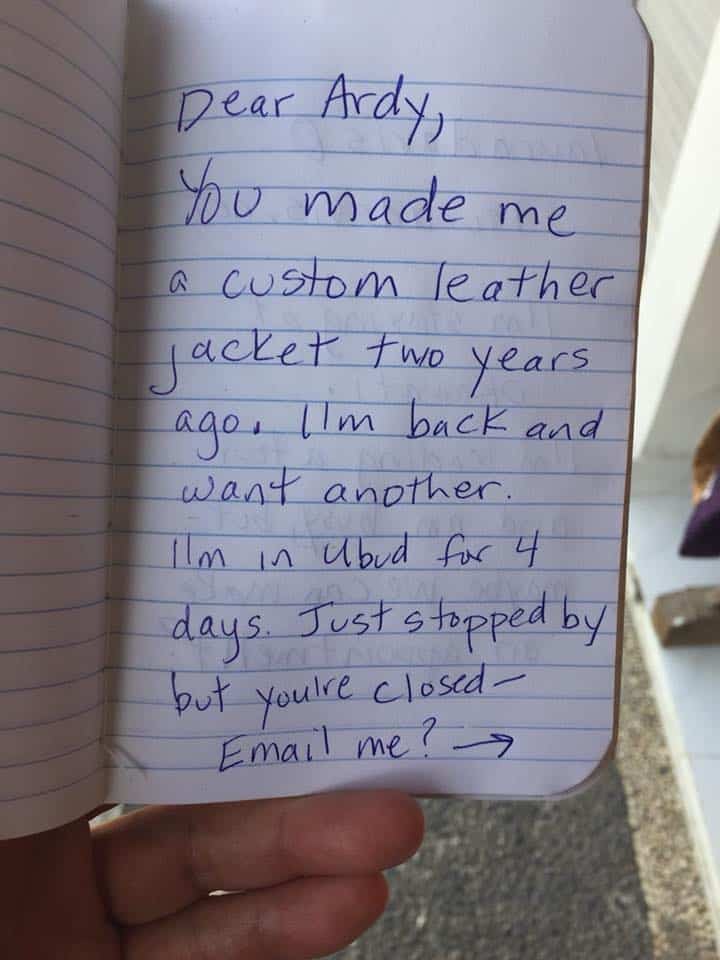 Dear Ardy,
You made me
a custom leather
jacket two years
ago. I'm back and
want another.
I'm in Ubud for 4
days. Just stopped by
but you're closed—
Email me? →